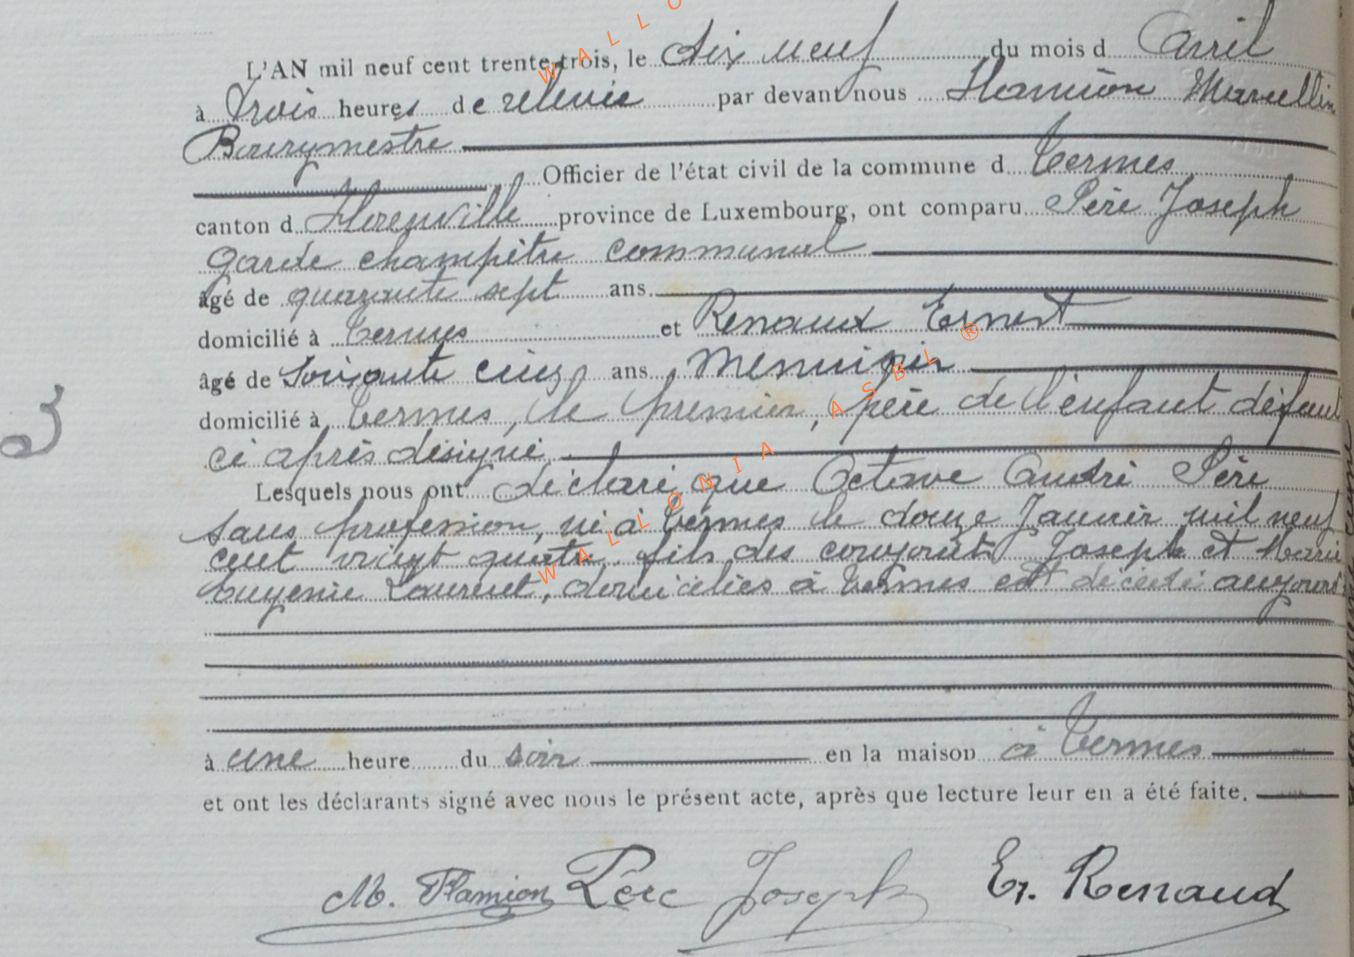 L'AN mil neuf cent trente-trois, le dix neuf du mois d avril
à trois heures de relevée par devant nous Hamion Marcellin
Bourgmestre
Officier de l'état civil de la commune d Termes
canton d Florenville province de Luxembourg, ont comparu Père Joseph
garde champêtre communal
âgé de quarante sept ans
domicilié à Termes et Renaux Ernest
âgé de soixante cinq ans, menuisier
domicilié à Termes, le premier, père de l'enfant défunt
ci après désigné
Lesquels nous ont déclaré que Octave André Père
sans profession, né à Termes le douze Janvier mil neuf
cent vingt quatre, fils des conjoints Joseph et Marie
Eugenie Laurent, domiciliés à Termes est décédé aujourd
à une heure du soir en la maison à Termes
et ont les déclarants signé avec nous le présent acte, après que lecture leur en a été faite.
M. Hamion Père Joseph Er. Renaud
3
WALLONIA ASBL ®
WALLO